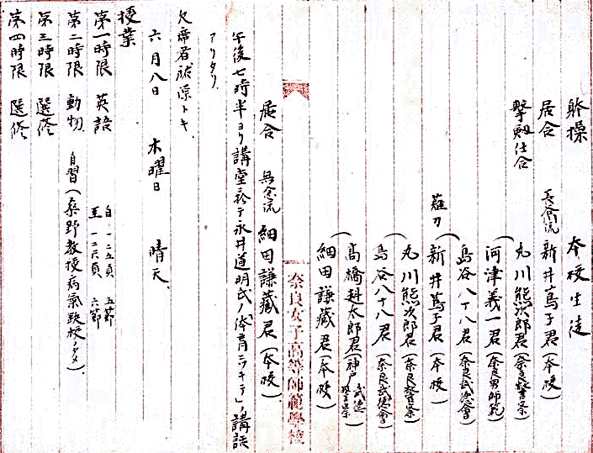 躰操　本校生徒
居合　長谷流　新井蔦子君（本校）
撃剱仕合　丸川熊次郎君（奈良警察）
河津義一君（奈良男師範）
島谷八十八君（奈良武徳會）
薙刀　新井蔦子君（本校）
丸川熊次郎君（奈良警察）
島谷八十八君（奈良武徳會）
高橋赳太郎君（神戸武徳警察）
細田謙藏君（本校）
奈良女子高等師範學校
居合　無念流　細田謙藏君（本校）
午後七時半ヨリ講堂ニ於テ永井道明氏ノ「体育ニツキテ」ノ講話
アリタリ
欠席者　トキ
六月八日　木曜日　晴天、
授業
第一時限　英語　自一二五頁五節　至一二六頁六節
第二時限　動物　自習（桑野教授病氣欠校ノタメ）
第三時限　選修
第四時限　選修